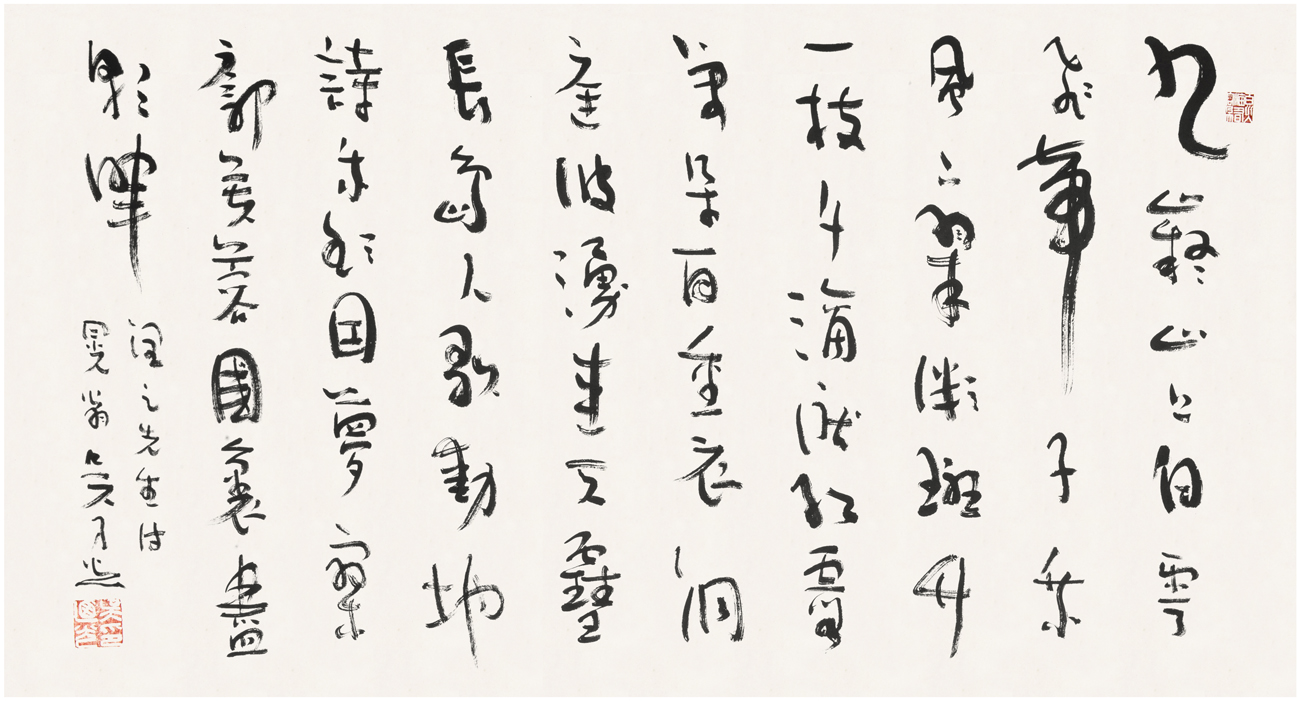 九嶷山上白雲
飛帝子乘
風下翠微斑竹
一枝千滴淚紅霞
萬朵百重衣洞
庭波湧連天雪
長島人歌動地
詩我欲因夢寥
廓芙蓉國裏盡
朝暉
潤之先生詩
翁吳